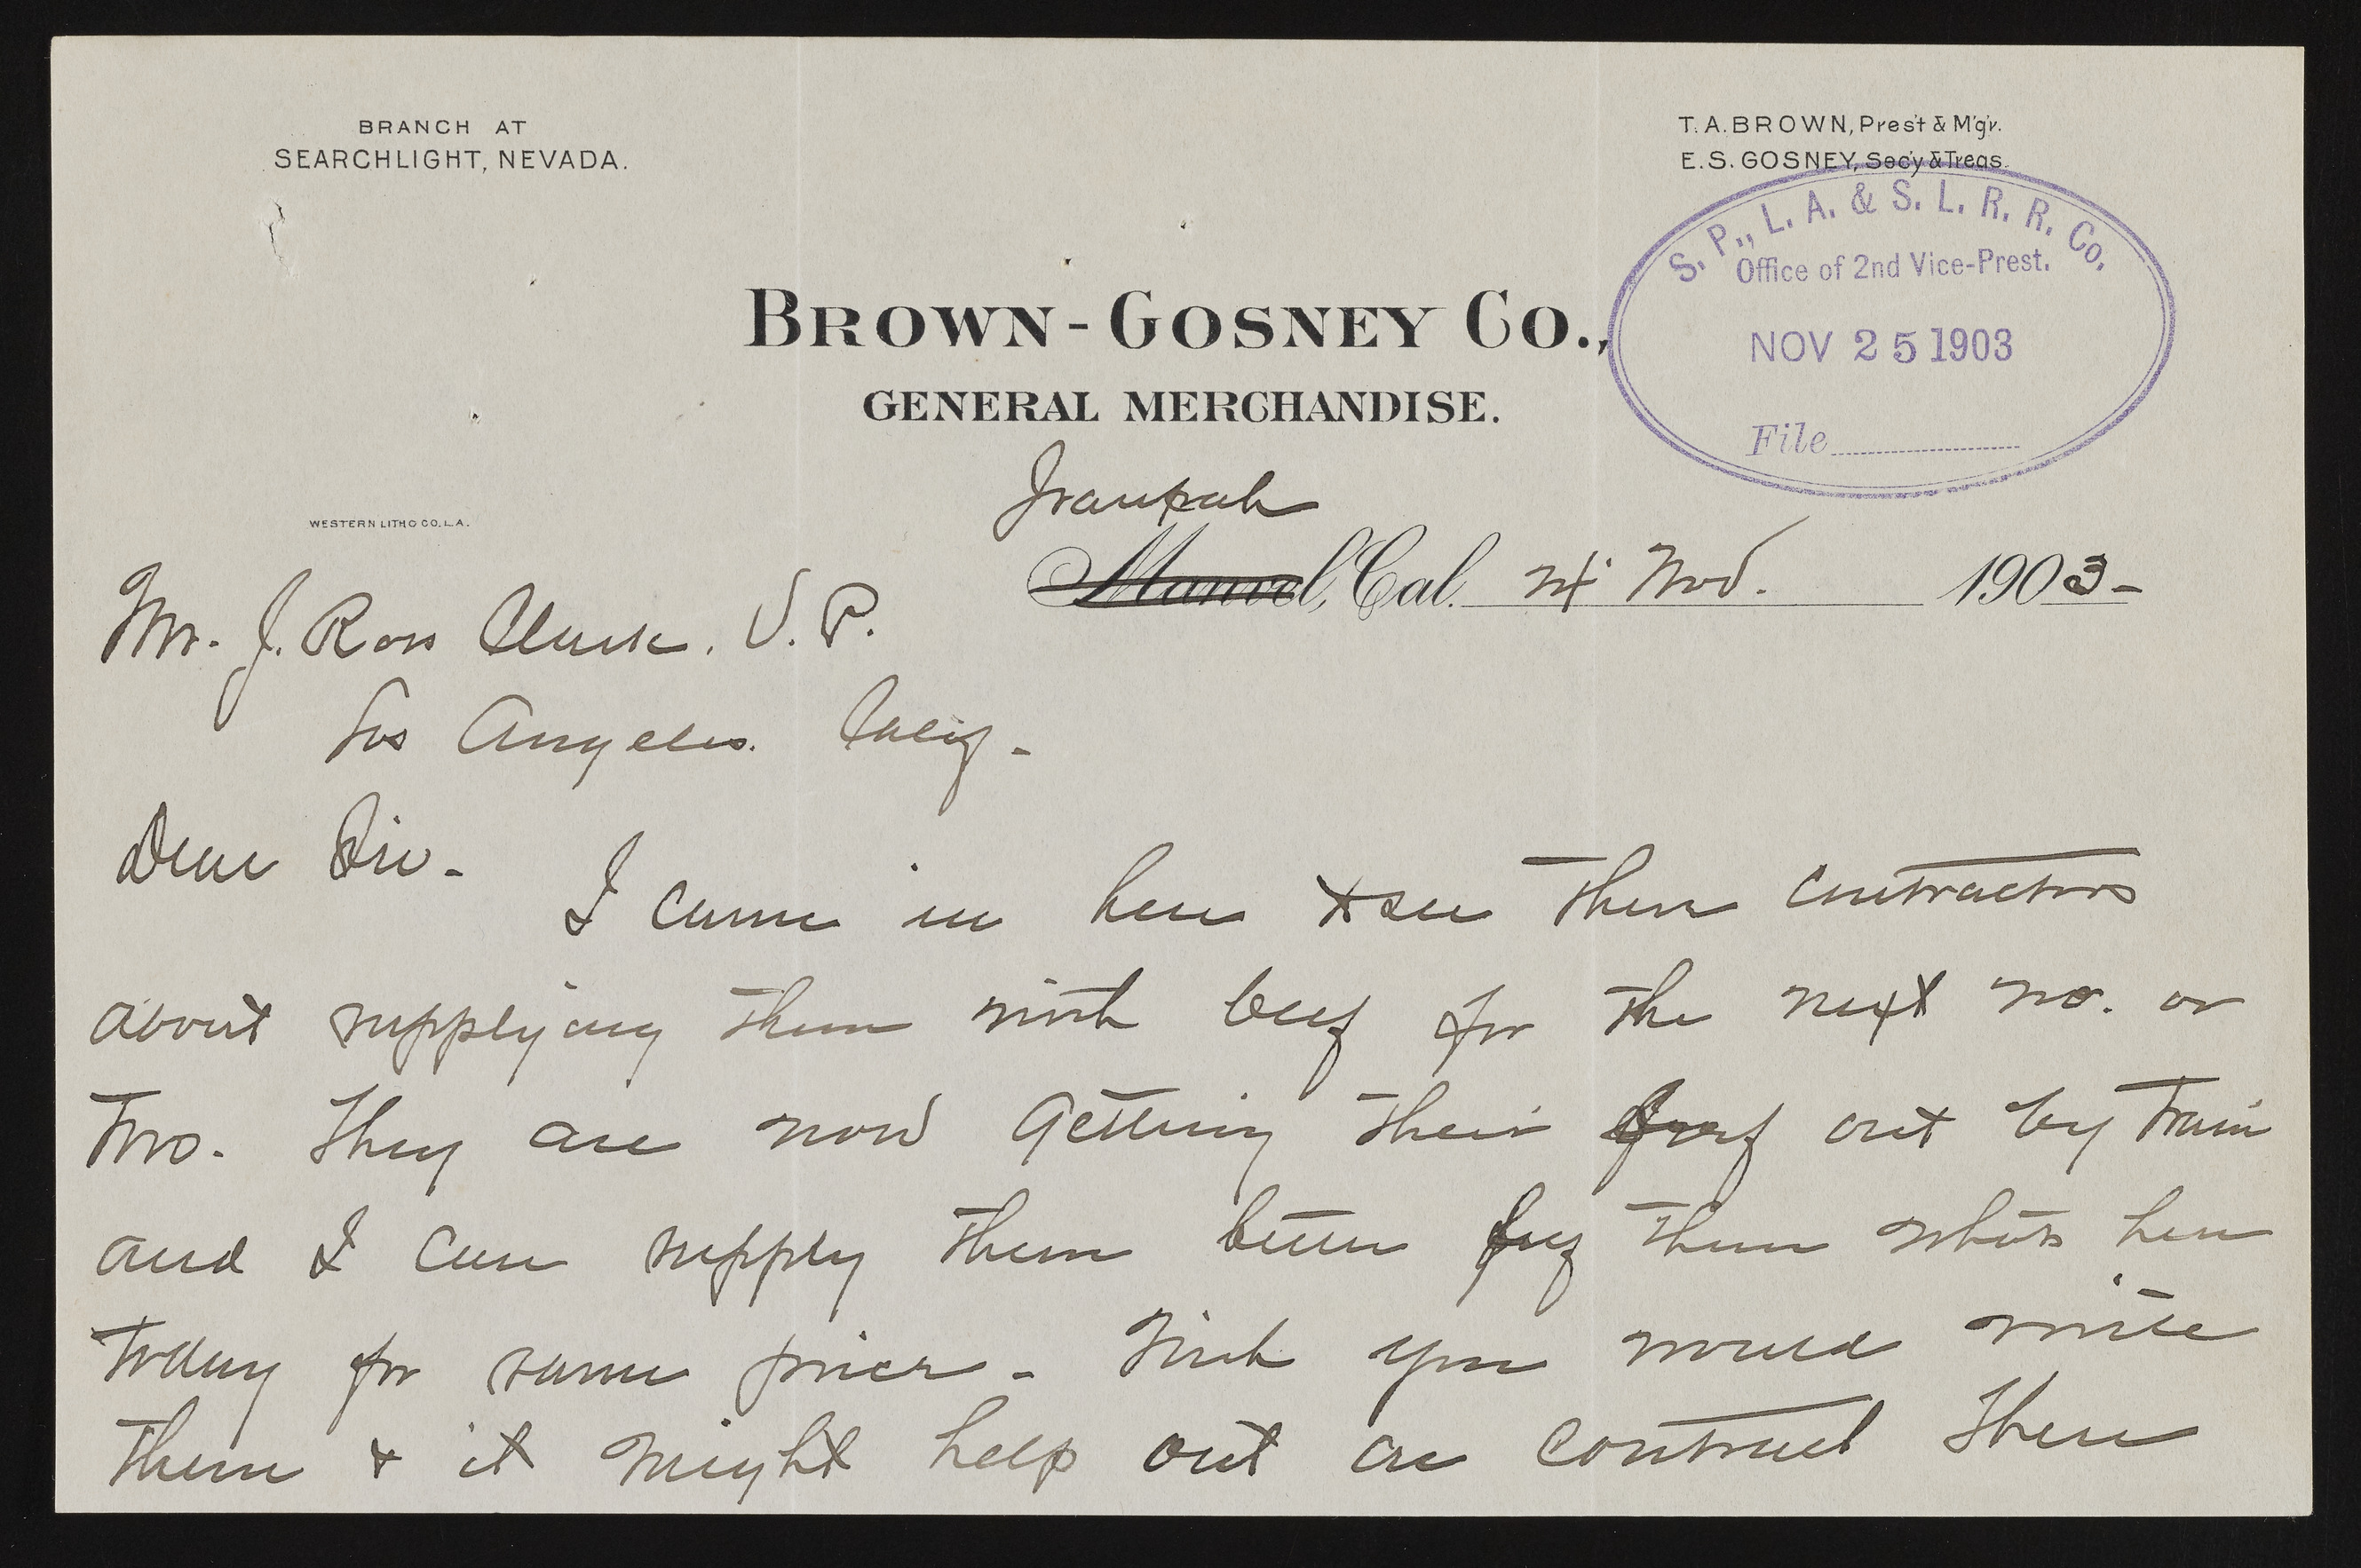 BRANCH AT
SEARCHLIGHT, NEVADA.
T. A. BROWN, Pres't & M'g'r.
E. S. GOSNEY, Sec'y & Treas.
S. P., L. A. & S. L. R. R. Co.
Office of 2nd Vice-Prest.
NOV 25 1903
File
BROWN-GOSNEY CO.,
GENERAL MERCHANDISE.
WESTERN LITHO CO. L.A.
Ivanpah
Manvel, Cal. Nov. 1903-
Mr. J. Ross Clark. V. P.
Los Angeles. Calif-
Dear Sir-
I came in here to see these contractors
about supplying them with beef for the next mo. or
two. They are now getting their beef out by train
and I can supply them better beef than whats here
today for same price - Wish you would write
them & it might help out on contract there